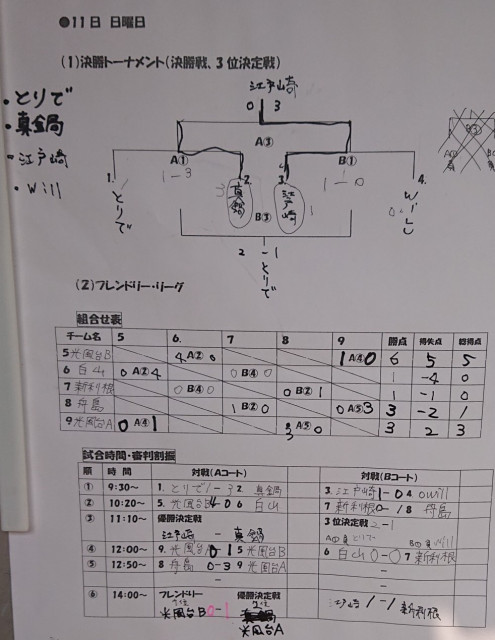 ●11日 日曜日
(1)決勝トーナメント(決勝戦、3位決定戦)
・とりで
・真鍋
-江戸崎
・Will
江戸崎
0 3
A③
A① B①
1-3 1-0
1. とりで
3 2. 真鍋
3. 江戸崎 1
4. Will 0
B③
2-1
とりで
(2)フレンドリー・リーグ
組合せ表
チーム名 5 6. 7 8 9 勝点 得失点 総得点
5 光風台B 4 A② 0 1 A④ 0 6 5 5
6 白山 0 A② 4 0 B④ 0 1 -4 0
7 新利根 0 B④ 0 0 B② 1 1 -1 0
8 舟島 1 B② 0 0 A⑤ 3 3 -2 1
9 光風台A 0 A④ 1 3 A⑤ 0 3 2 3
試合時間・審判割振
順 時間 対戦(Aコート) 対戦(Bコート)
① 9:30~ 1. とりで 1-3 2 真鍋 3. 江戸崎 1-0 4 will
② 10:20~ 5. 光風台B 4 0 6 白山 7 新利根 0-1 8 舟島
③ 11:10~ 優勝決定戦 3位決定戦 2-1
江戸崎 - 真鍋
④ 12:00~ 9. 光風台A 0 1 5 光風台B 6 白山 0-0 7 新利根
⑤ 12:50~ 8 舟島 0-3 9 光風台A
⑥ 14:00~ フレンドリー 優勝決定戦
1位 2位
光風台B 0-1 光風台A
江戸崎 1-1 新利根